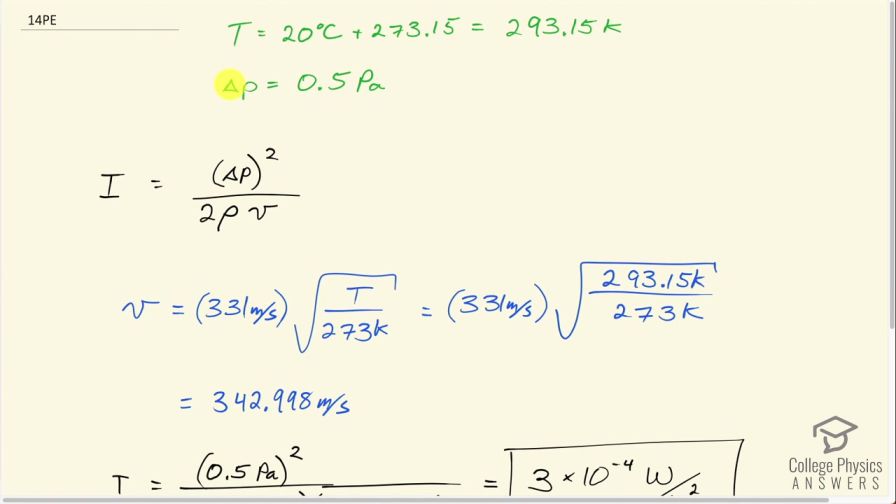 14PE
T = 20°C + 273.15 = 293.15 K
Δp = 0.5 Pa
I = (Δp)² / 2ρv
v = (331 m/s) √(T / 273 K) = (331 m/s) √(293.15 K / 273 K)
= 342.998 m/s
I = (0.5 Pa)² = 3 × 10⁻⁴ W/ 2
College Physics
ANSWERS